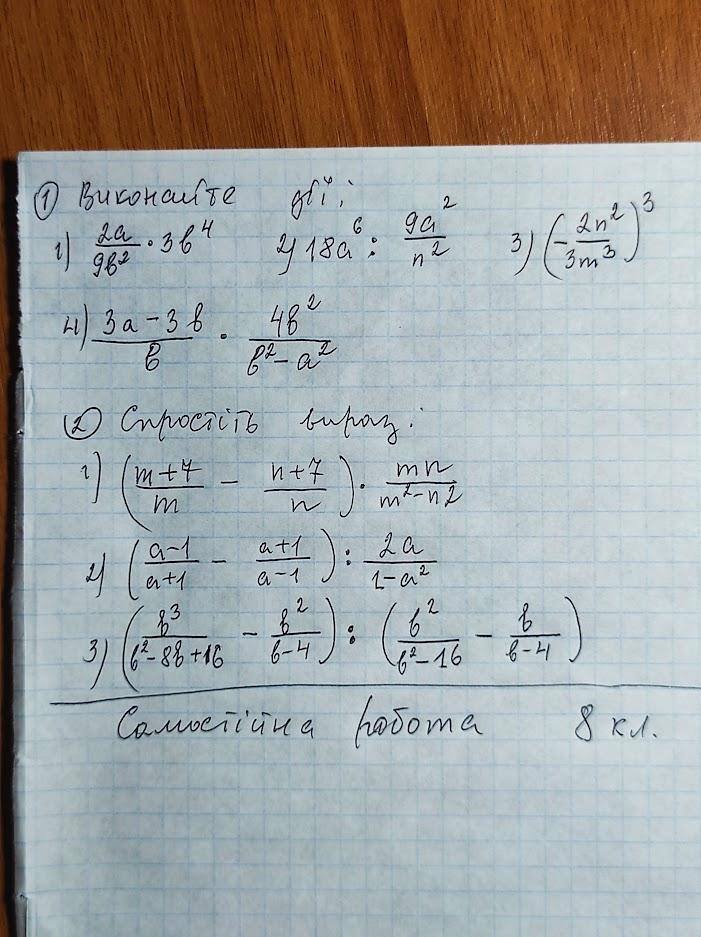 ① Виконайте дії:
1) 2a/9b² · 3b⁴ 2) 18a⁶ : 9a²/n² 3) (-2n²/3m³)³
4) (3a - 3b)/b · 4b²/(b² - a²)
② Спростіть вираз:
1) ((m+7)/m - (n+7)/n) · mn/(m² - n²)
2) ((a-1)/(a+1) - (a+1)/(a-1)) : 2a/(1-a²)
3) (b³/(b² - 8b + 16) - b²/(b-4)) : (b²/(b² - 16) - b/(b-4))
Самостійна робота 8 кл.